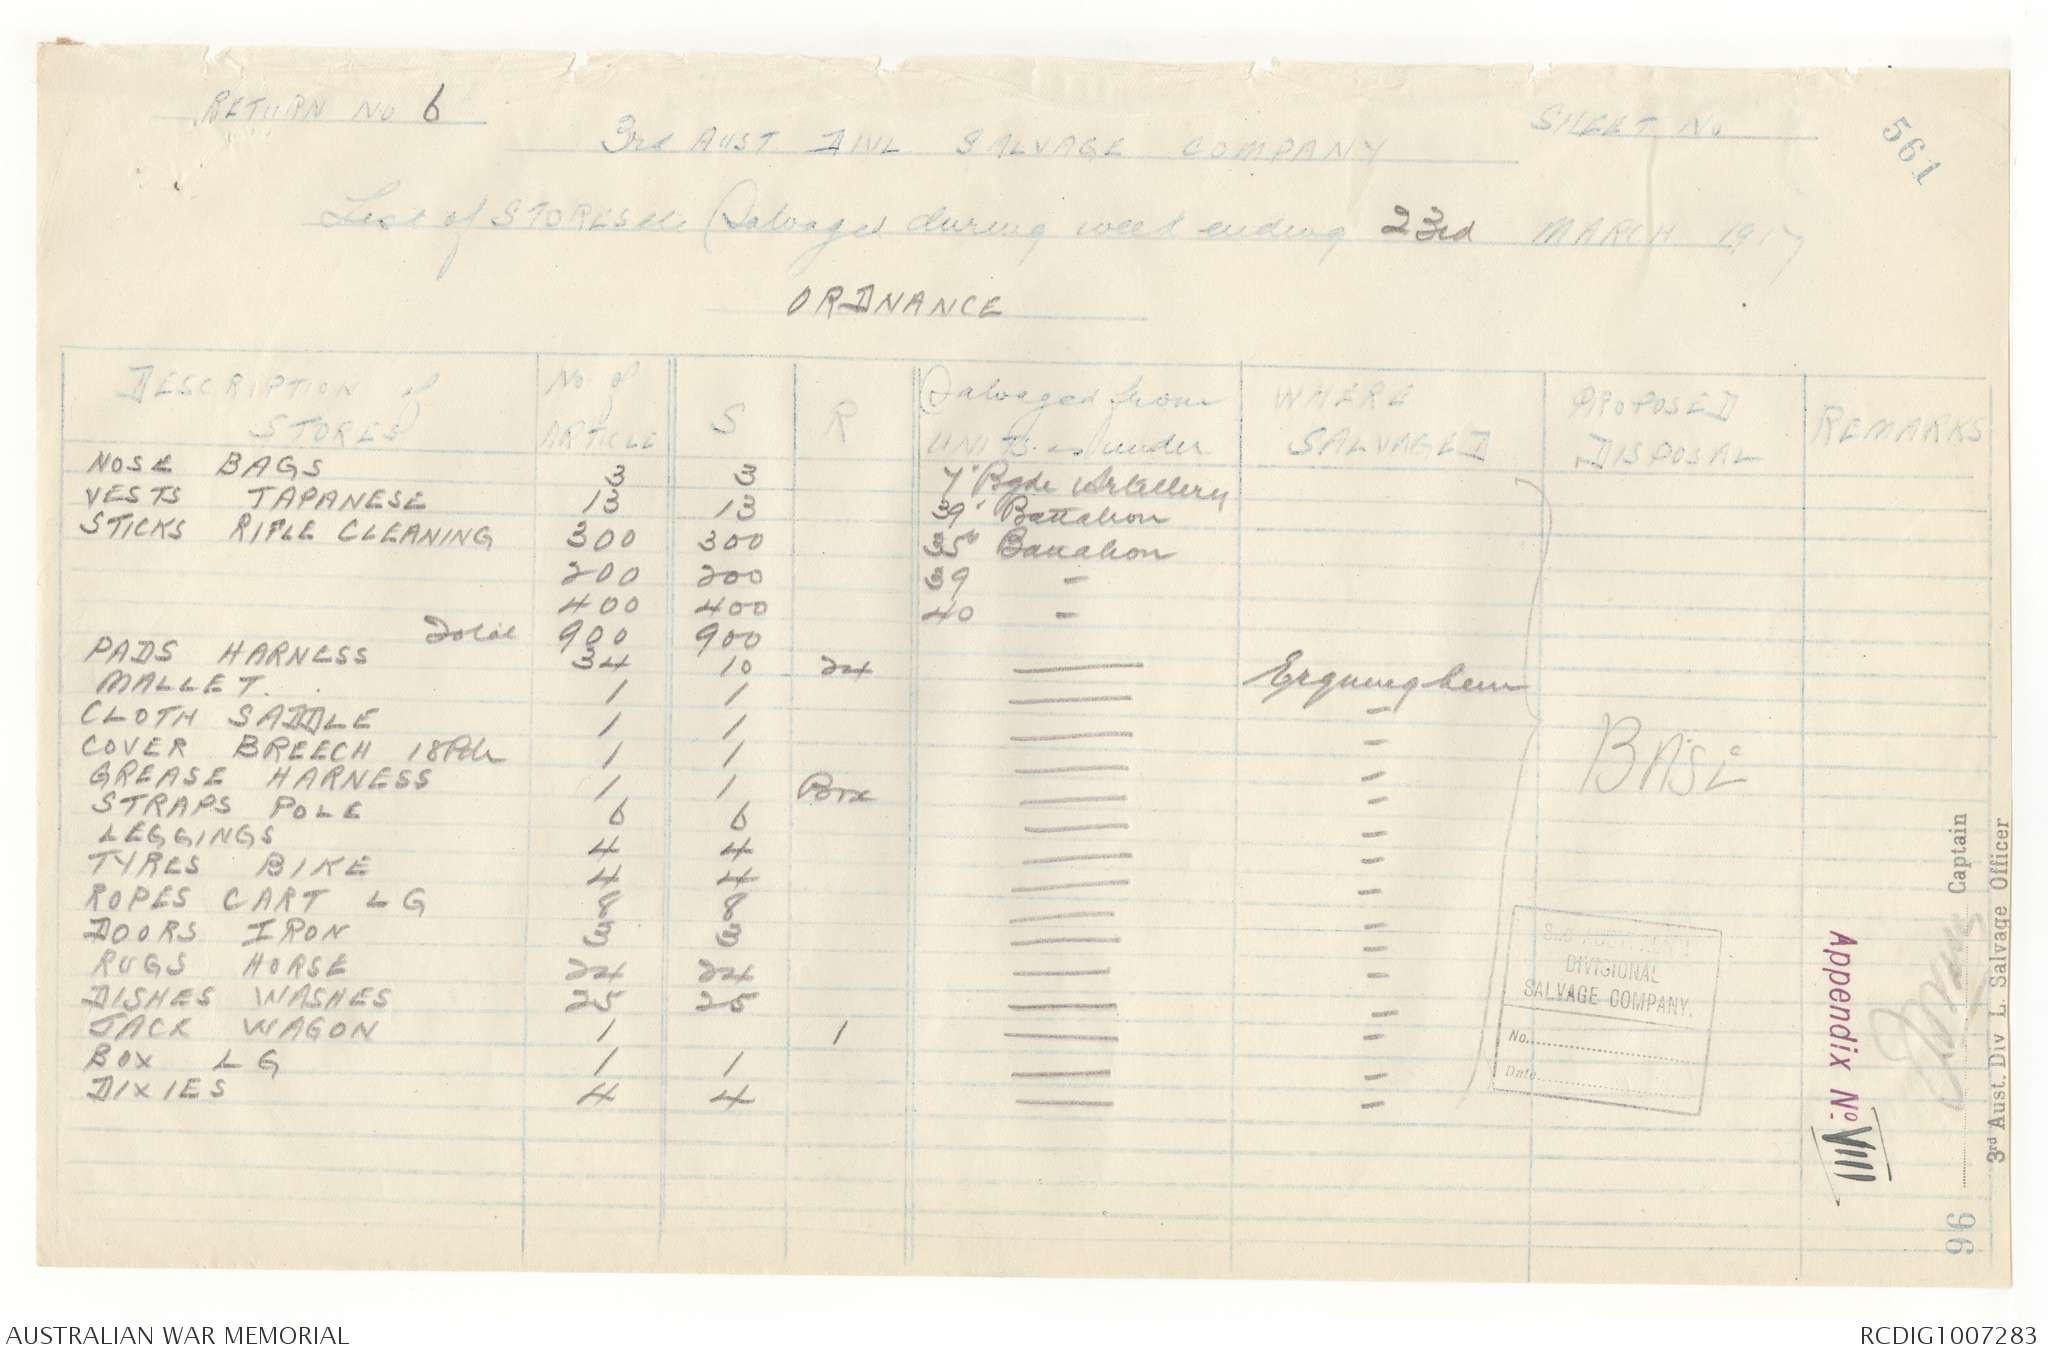 RETURN No 6
SHEET No
561
3rd AUST DIVL SALVAGE COMPANY
List of STORES etc Salvaged during week ending 23rd MARCH 1917
ORDNANCE
DESCRIPTION of STORES | No of ARTICLE | S | R | Salvaged from UNITS as under | WHERE SALVAGED | PROPOSED DISPOSAL | REMARKS
NOSE BAGS 3 3 7" Bgde Artillery
VESTS JAPANESE 13 13 39' Battalion
STICKS RIFLE CLEANING 300 300 35th Battalion
200 200 39 "
400 400 40 "
Total 900 900
PADS HARNESS 34 10 24 — Erquinghem
MALLET. 1 1 — "
CLOTH SADDLE 1 1 — "
COVER BREECH 18Pdr 1 1 — "
GREASE HARNESS 1 1 Box — "
STRAPS POLE 6 6 — "
LEGGINGS 4 4 — "
TYRES BIKE 4 4 — "
ROPES CART LG 8 8 — "
DOORS IRON 3 3 — "
RUGS HORSE 24 24 — "
DISHES WASHES 25 25 — "
JACK WAGON 1 1 — "
BOX LG 1 1 — "
DIXIES 4 4 — "
BASE
DIVISIONAL
SALVAGE COMPANY.
No.
Date
Appendix No. VIII
Captain
3rd Aust. Div L. Salvage Officer
96
AUSTRALIAN WAR MEMORIAL
RCDIG1007283